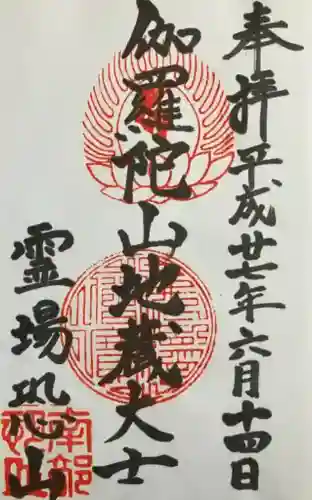 奉拝平成廿七年六月十四日
伽羅陀山地蔵大士
霊場恐山
南部
恐山